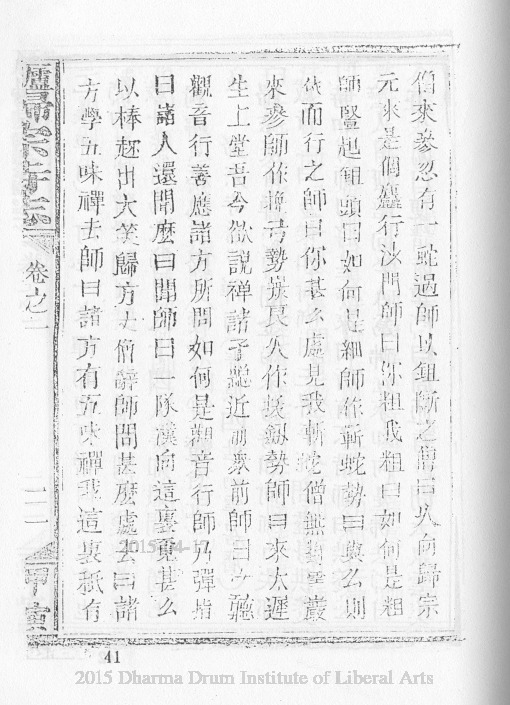 僧來參忽有一蛇過師以鉏斷之僧曰久向歸宗
元來是個麤行沙門師曰你粗我粗曰如何是粗
師豎起鉏頭曰如何是細師作斬蛇勢曰與么則
依而行之師曰你甚么處見我斬蛇僧無對雲巖
來參師作挽弓勢巖良久作拔劔勢師曰來太遲
生上堂吾今欲說禪諸子總近前眾前師曰汝聽
觀音行善應諸方所問如何是觀音行師乃彈指
曰諸人還聞麼曰聞師曰一隊漢向這裏覓甚么
以棒趂出大笑歸方丈僧辭師問甚麼處去曰諸
方學五味禪去師曰諸方有五味禪我這裏祇有
卷之二
41
2015 Dharma Drum Institute of Liberal Arts